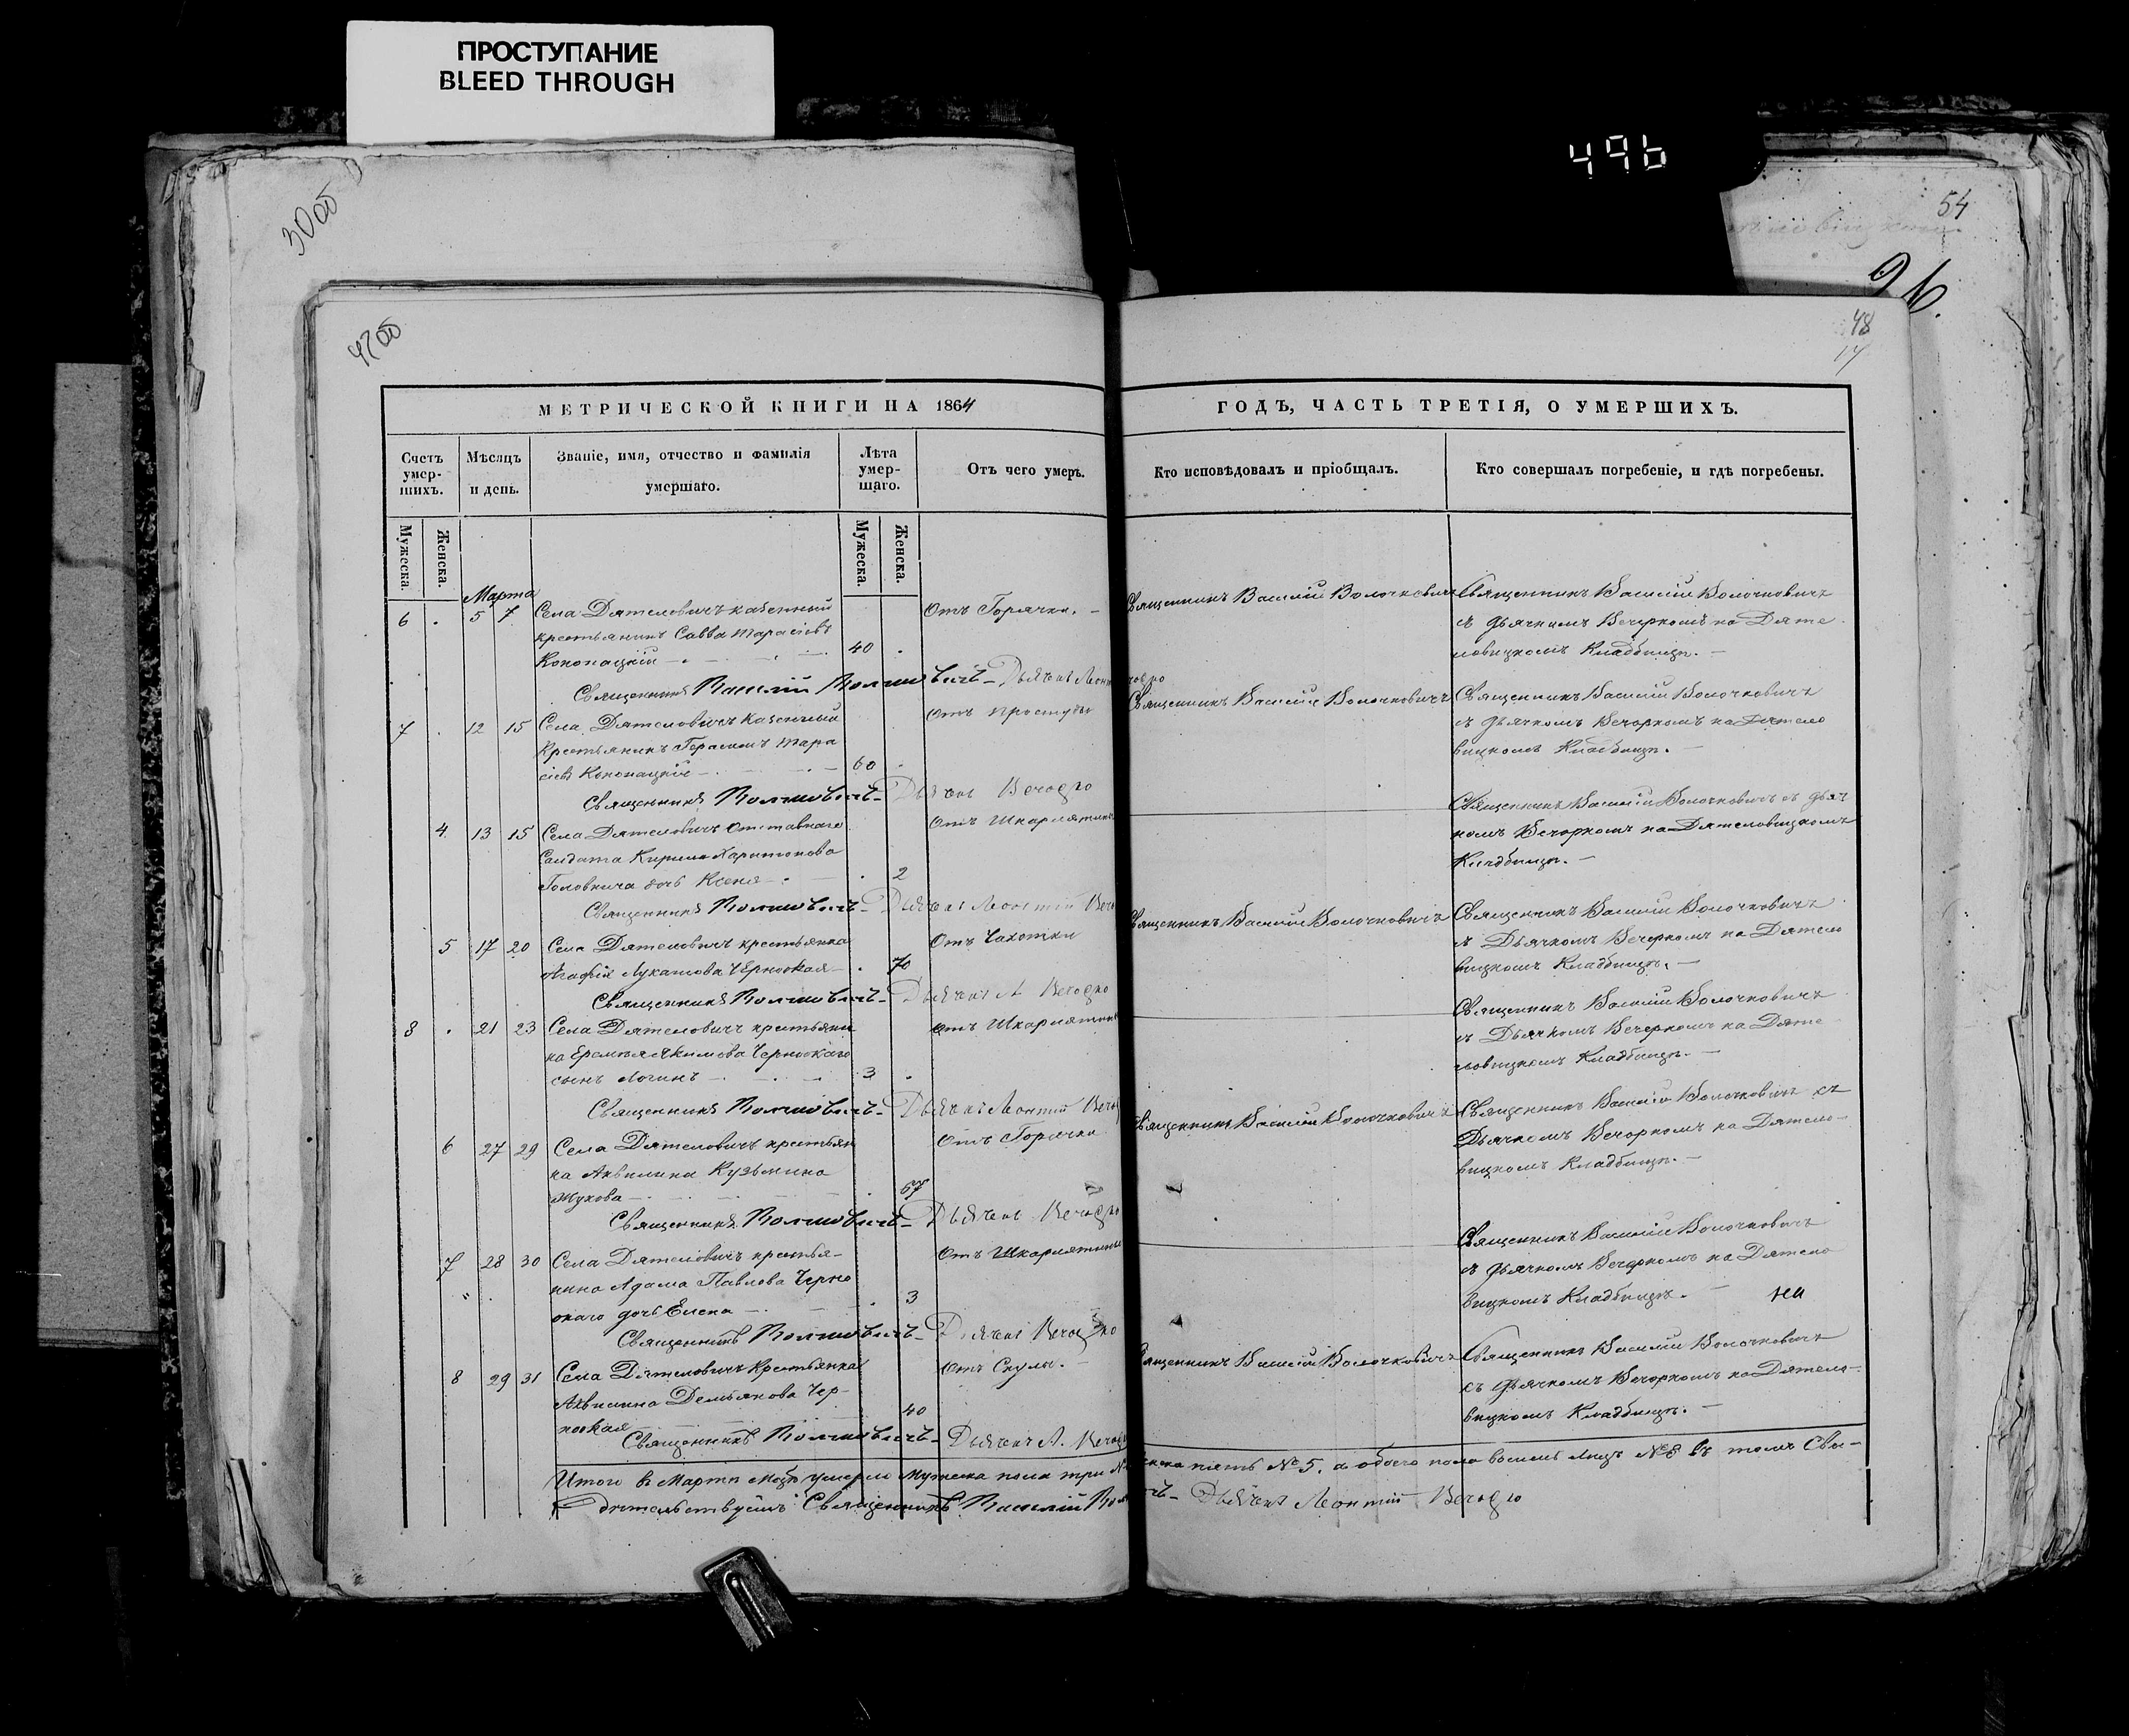 ПРОСТУПАНИЕ
BLEED THROUGH
496
54
96.
3000
4700
48
МЕТРИЧЕСКОЙ КНИГИ НА 1864
ГОДЪ, ЧАСТЬ ТРЕТІЯ, О УМЕРШИХЪ.
Счетъ умер-шихъ.
Мѣсяцъ и день.
Званіе, имя, отчество и фамилія умершаго.
Лѣта умер-шаго.
Отъ чего умеръ.
Кто исповѣдовалъ и пріобщалъ.
Кто совершалъ погребеніе, и гдѣ погребены.
Мужеска.
Женска.
Мужеска.
Женска.
Марта
6 . 5 7 Села Дятеловичъ казенный
Отъ Горячки. –
Священникъ Василій Волочковичъ
Священникъ Василій Волочковичъ
крестьянинъ Савва Тарасіевъ
съ дьячкомъ Вечоркомъ на Дяте
Конопацкій 40 .
ловицкомъ Кладбищѣ. –
Священникъ Василій Волочковичъ – Дьячекъ
7 . 12 15 Села Дятеловичъ Казенный
Отъ простуды
Священникъ Василій Волочковичъ
Священникъ Василій Волочковичъ
Крестьянинъ Герасимъ Тара
съ дьячкомъ Вечоркомъ на Дятело
сіевъ Конопацкій 60 .
вицкомъ Кладбищѣ. –
Священникъ Волочковичъ – Дьячекъ Вечорко
4 13 15 Села Дятеловичъ отставнаго
Отъ Шкарлятины
Священникъ Василій Волочковичъ съ дьяч
Солдата Кирила Харитонова
комъ Вечоркомъ на Дятеловицкомъ
Головнича дочь Ксенія . 2
Кладбищѣ. –
Священникъ Волочковичъ – Дьячекъ Леонтій
5 17 20 Села Дятеловичъ крестьянка
Отъ Чахотки
Священникъ Василій Волочковичъ
Священникъ Василій Волочковичъ
Агафія Лукашова Черноокая . 70
съ Дьячкомъ Вечоркомъ на Дятело
вицкомъ Кладбищѣ. –
Священникъ Волочковичъ – Дьячекъ Л Вечорко
8 . 21 23 Села Дятеловичъ крестьяни
Отъ Шкарлятины
Священникъ Василій Волочковичъ
на Еремѣя Якимова Черноокаго
съ Дьячкомъ Вечоркомъ на Дяте
сынъ Логинъ 3 .
ловицкомъ Кладбищѣ. –
Священникъ Волочковичъ – Дьячекъ Леонтій
6 27 29 Села Дятеловичъ крестьян
Отъ Горячки
Священникъ Василій Волочковичъ
Священникъ Василій Волочковичъ съ
ка Аквилина Кузьмина
Дьячкомъ Вечоркомъ на Дятело-
Жукова . 67
вицкомъ Кладбищѣ. –
Священникъ Волочковичъ – Дьячекъ Вечорко
7 28 30 Села Дятеловичъ крестья-
Отъ Шкарлятины
Священникъ Василій Волочковичъ
нина Адама Павлова Черно
съ дьячкомъ Вечоркомъ на Дятело
окаго дочь Елена . 3
вицкомъ Кладбищѣ. –
Священникъ Волочковичъ – Дьячекъ Вечорко
8 29 31 Села Дятеловичъ Крестьянка
Отъ Скулы. –
Священникъ Василій Волочковичъ
Священникъ Василій Волочковичъ
Аквилина Демьянова Чер-
съ Дьячкомъ Вечоркомъ на Дятело-
нооkая 40
вицкомъ Кладбищѣ. –
Священникъ Волочковичъ – Дьячекъ Л. Вечорко
Итого в Мартѣ умерло Мужеска пола три женска пять №5. а обоего пола восемь лицъ №8 въ томъ Сви-
дѣтельствуемъ: Священникъ Василій Волочковичъ – Дьячекъ Леонтій Вечорко